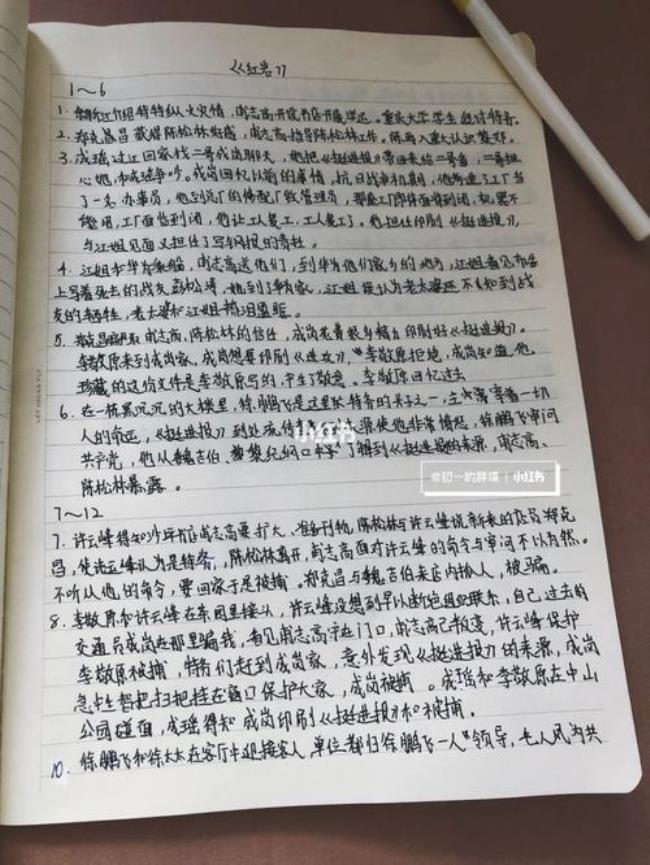 《红岩》
1～6
1. 余新江介绍特特纵火灾情，甫志高开设书店开展学运。重庆大学学生逃讨特务。
2. 郑克昌获得陈松林好感，甫志高指导陈松林工作。陈再入重大认识黎纪。
3. 成瑶过江回家找二哥成岗聊天，她把《挺进报》带回来给二哥看，二哥担
心她，和成瑶争吵。成岗回忆以前的事情，抗日战争初期，他考进了工厂当
了一名办事员，他到总厂的修配厂做管理员，那座工厂即将面临到闭，机器不
能用，工厂面临到闭，他让工人复工，工人复工了。他担任印刷《挺进报》，
与江姐见面又担任了写钢报的责任。
4. 江姐和华为乘船，甫志高送他们，到华为他们家乡的地方，江姐看见布告
上写着死去的战友彭松涛，她到了华为家，江姐误认为老太婆还不知到战
友的牺牲，老太婆和江姐热泪盈眶。
5. 郑克昌骗取甫志高，陈松林的信任，成岗花费很多精力印刷好《挺进报》。
李敬原来到成岗家，成岗想要印刷《进攻》，李敬原拒绝，成岗知道，他
珍藏的这份文件是李敬原写的，产生了敬意。李敬原回忆过去
6. 在一栋黑沉沉的大楼里，徐鹏飞是这里欧特务的头子之一，主宰着一切
人的命运，《挺进报》到处流传 来源使他非常愤怒，徐鹏飞审问
共产党，他从魏吉伯、黎纪纲口中 了解到《挺进报》的来源，甫志高、
陈松林暴露。
7～12
7. 许云峰得知沙坪书店甫志高要扩大、准备刊物，陈松林与许云峰说新来的店员郑克
昌，使许云峰认为是特务，陈松林离开，甫志高面对许云峰的命令与审问不以为然。
不听从他的命令，要回家于是被捕。郑克昌与魏吉伯来店内抓人，被骗。
8. 李敬原和许云峰在东园里接头，许云峰没想到早以断绝 联系，自己过去的
交通员成岗在那里 ，看见甫志高守在门口，甫志高已叛变，许云峰保护
李敬原被捕，特务们赶到成岗家，意外发现《挺进报》的来源，成岗
急中生智把扫把挂在窗口保护大家，成岗被捕。成瑶和李敬原在中山
公园碰面，成瑶得知成岗印刷《挺进报》和被捕。
10. 徐鹏飞和徐太太在客厅中迎接客人，单位都归徐鹏飞一人"领导，毛人凤为共
小红书
@初一的胖瑛 | 小红书